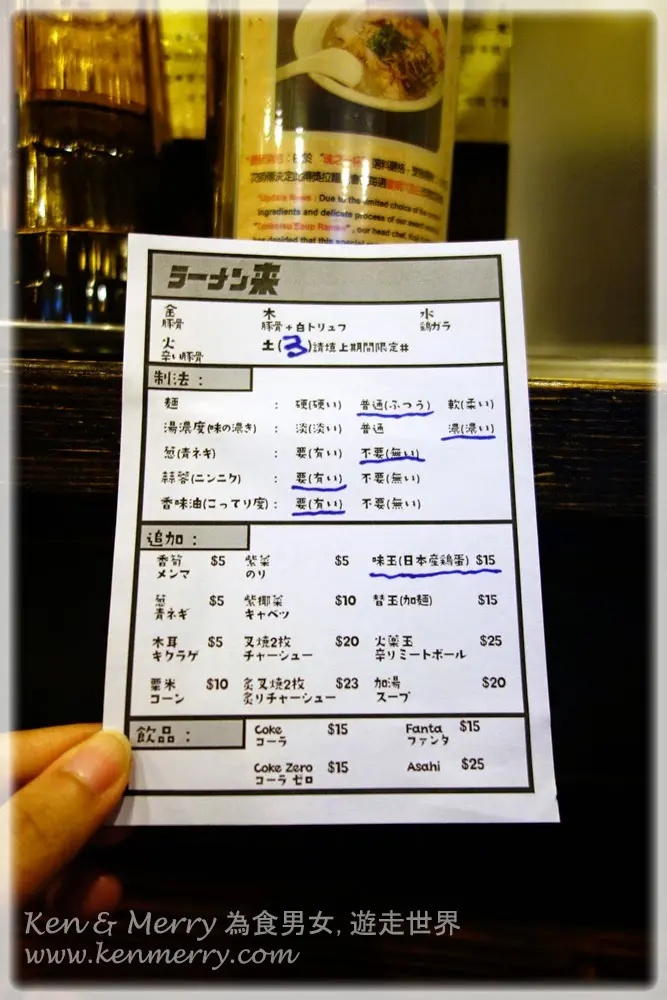 "Update News : Due to the limited choice of the
ingredients and delicate process of our award
Tonkotsu Soup Ramen" , our head chef,
has decided that this special
ラーメン来
金 木 水
豚骨 豚骨+白トリュフ 鶏ガラ
火 土(3)請填上期間限定#
辛い豚骨
制法 :
麵 : 硬(硬い) 普通(ふつう) 軟(柔い)
湯濃度(味の濃き) : 淡(淡い) 普通 濃(濃い)
葱(青ネギ) : 要(有い) 不要(無い)
蒜蓉(ニンニク) : 要(有い) 不要(無い)
香味油(こってり度) : 要(有い) 不要(無い)
追加 :
香筍 $5 紫菜 $5 味王(日本産鶏蛋) $15
メンマ のり
葱 $5 紫椰菜 $10 替玉(加麵) $15
青ネギ キャベツ
木耳 $5 叉焼2枚 $20 火薬王 $25
キクラゲ チャーシュー 辛リミートボール
粟米 $10 炙叉焼2枚 $23 加湯 $20
コーン 炙リチャーシュー スープ
飲品 : Coke $15 Fanta $15
コーラ ファンタ
Coke Zero $15 Asahi $25
コーラ ゼロ
Ken & Merry 為食男女, 遊走世界
www.kenmerry.com